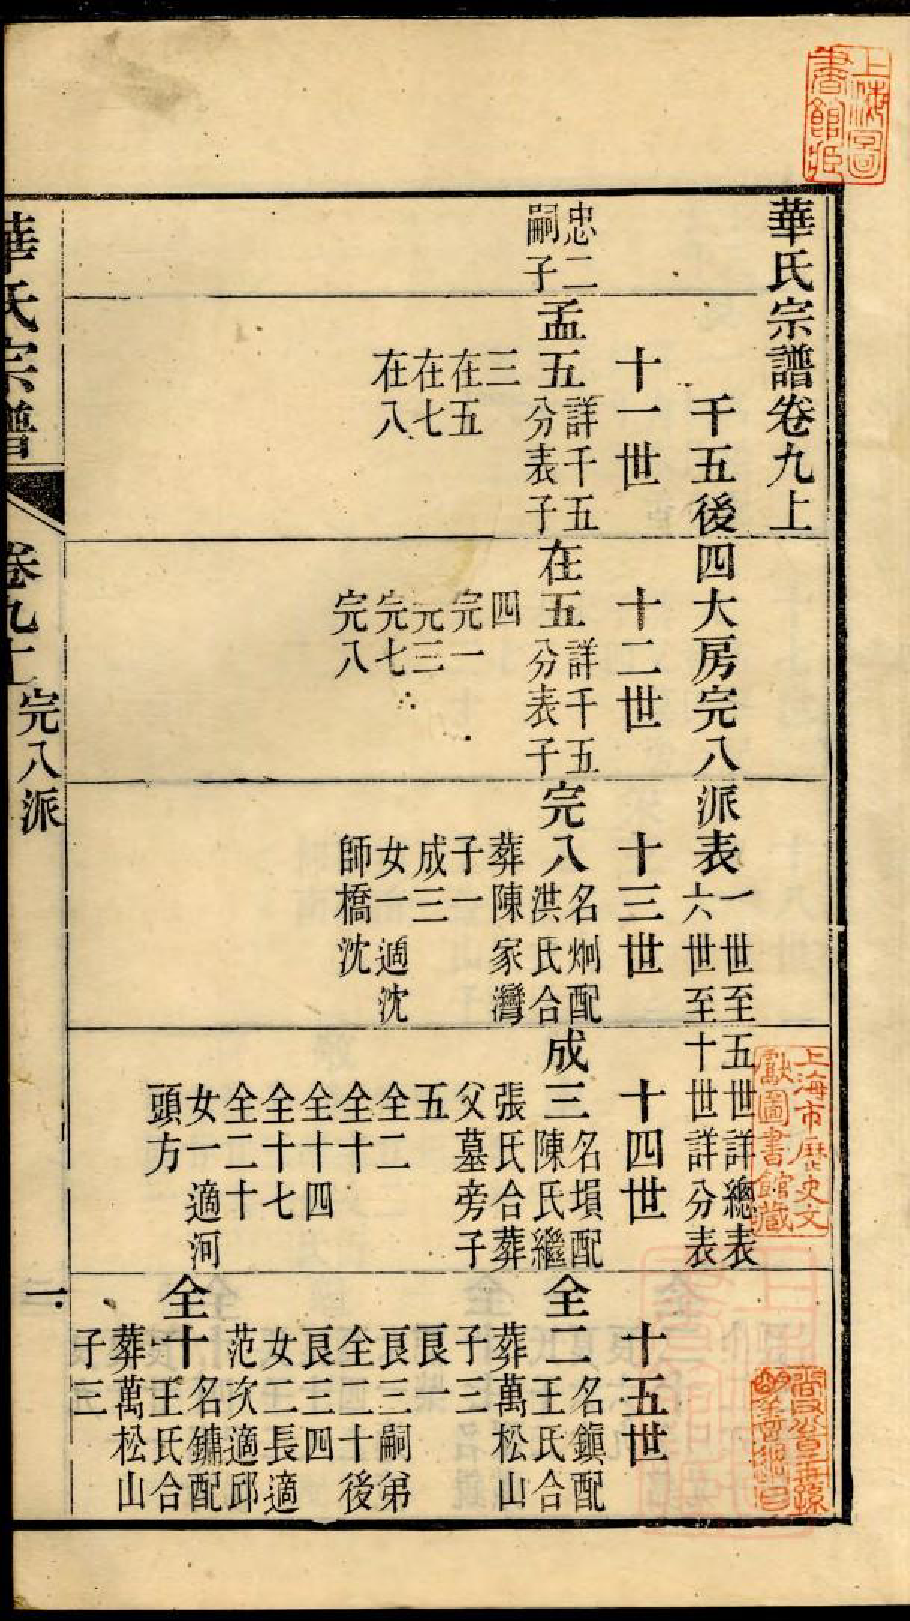 上海圖書館藏
華氏宗譜卷九上
千五後四大房完八派表
一世至五世詳總表
六世至十世詳分表
十一世
十二世
十三世
十四世
十五世
忠二
嗣子
孟五
詳千五
分表子
三
在五
在七
在八
在五
詳千五
分表子
四
完一
完三
完七
完八
完八
名炯配
洪氏合
葬陳家灣
子一
成三
女一適沈
師橋沈
成三
名塤配
陳氏繼
張氏合葬
父墓旁子
五
全二
全十
全十四
全十七
全二十
女一適河
頭方
全二
名鎭配
王氏合
葬萬松山
子三
良一
良三嗣弟
全二十後
良三四
女二長適
范次適邱
全十
名鏞配
王氏合
葬萬松山
子三
華氏宗譜
卷九上
完八派
一
上海市歷史文
獻圖書館藏